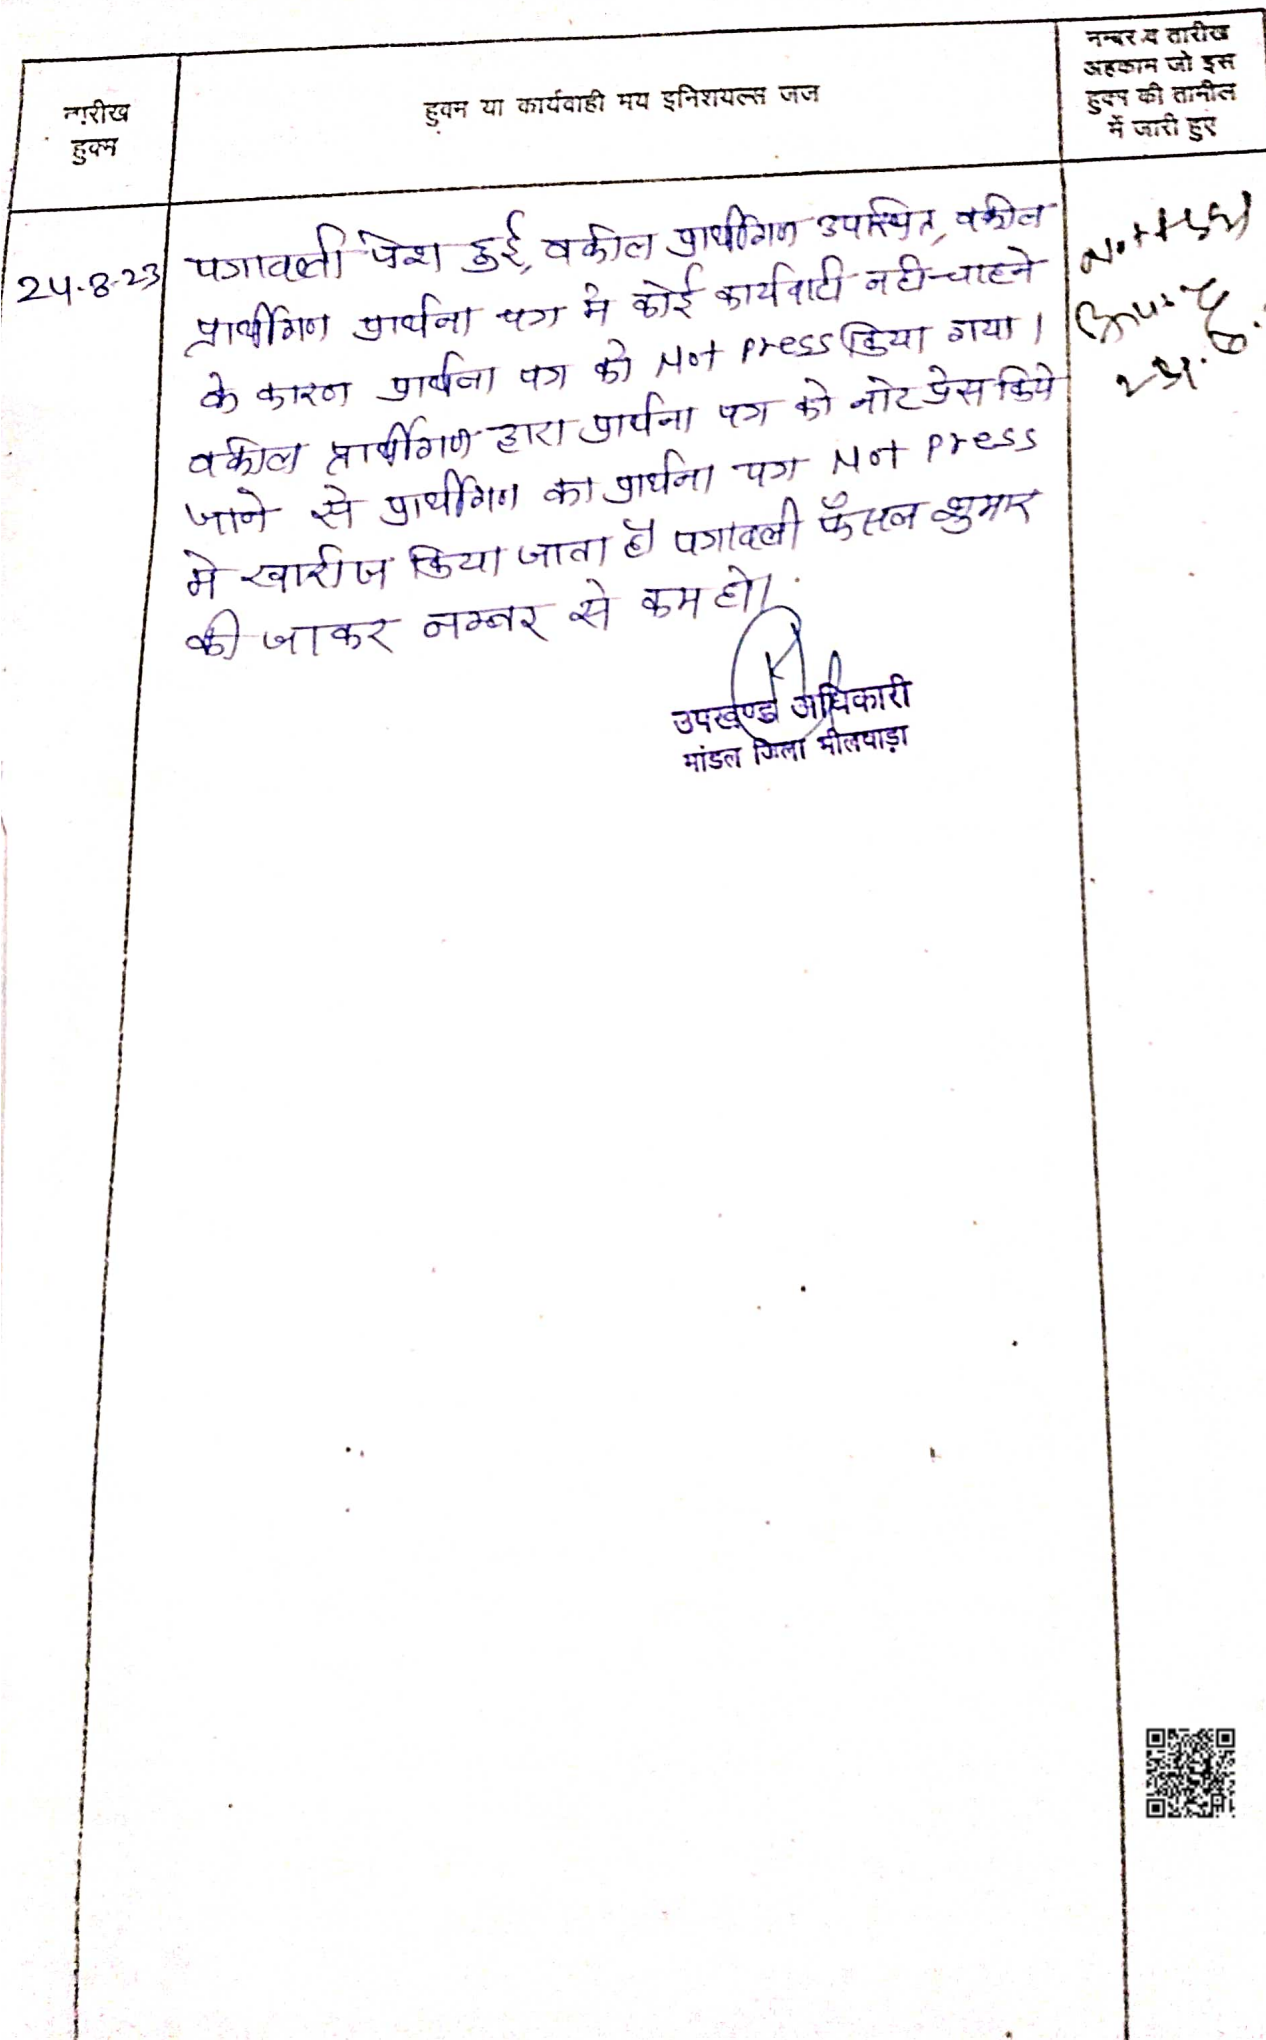 तारीख
हुक्म
हुक्म या कार्यवाही मय इनिशयल्स जज
नम्बर व तारीख
अहकाम जो इस
हुक्म की तामील
में जारी हुए
24-8-23
पत्रावली पेश हुई, वकील प्रार्थीगण उपस्थित, वकील
प्रार्थीगण प्रार्थना पत्र मे कोई कार्यवाही नही चाहने
के कारण प्रार्थना पत्र को Not press किया गया।
वकील प्रार्थीगण द्वारा प्रार्थना पत्र को नोट प्रेस किये
जाने से प्रार्थीगण का प्रार्थना पत्र Not press
मे खारीज किया जाता है पत्रावली फैसल शुमार
की जाकर नम्बर से कम हो।
उपखण्ड अधिकारी
मांडल जिला भीलवाड़ा